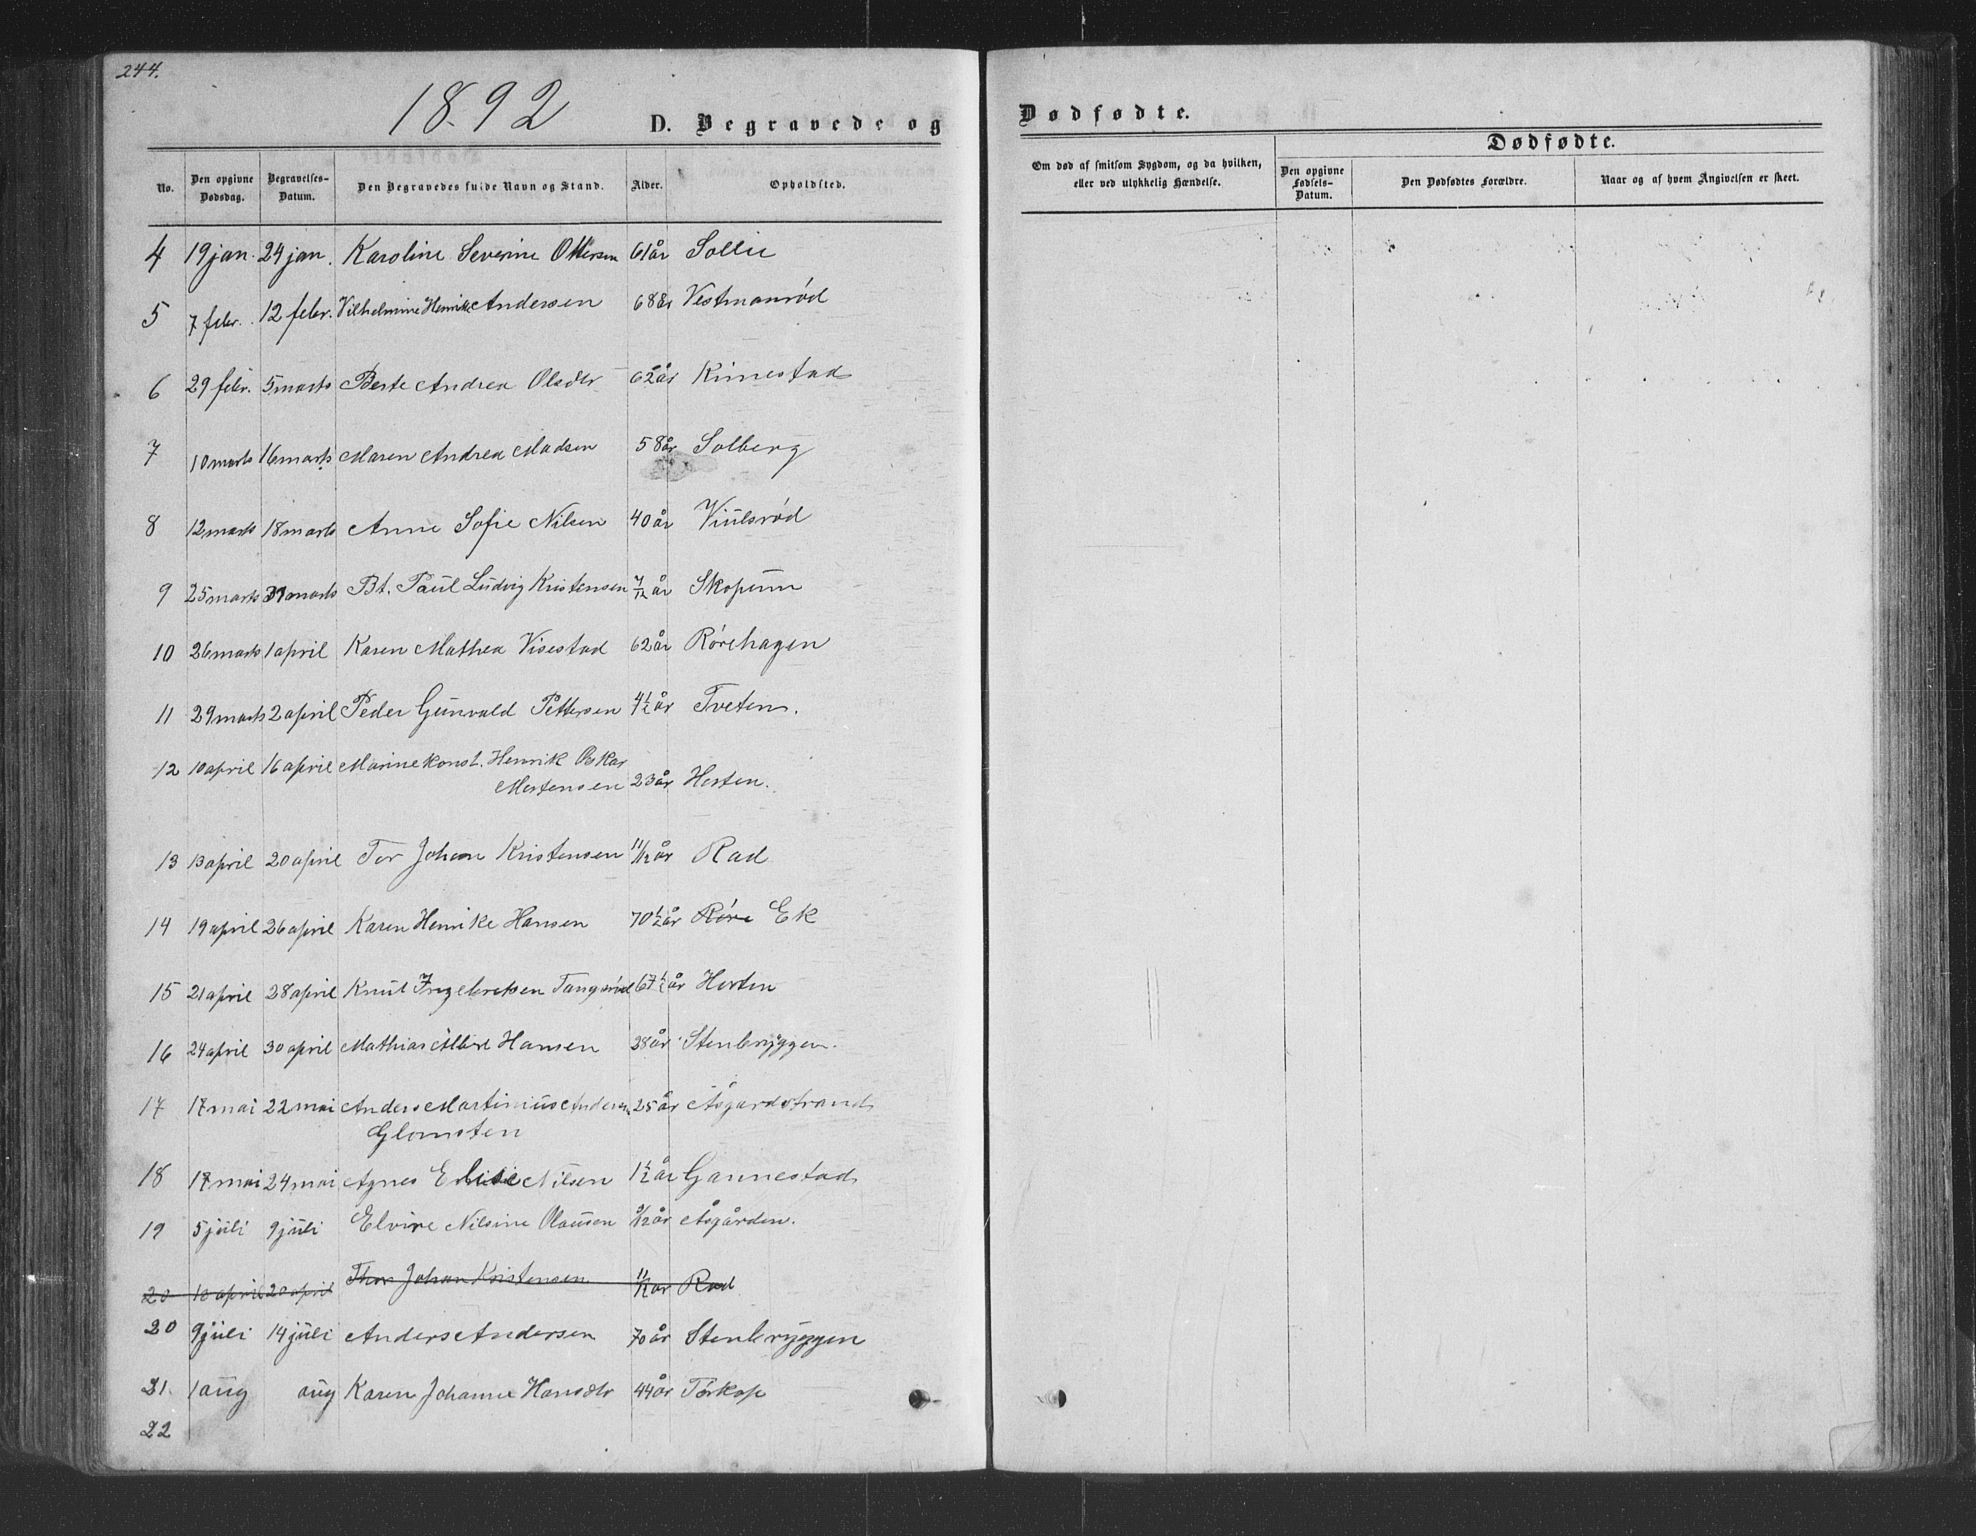 244.
1892
D. Begravede og
No.
Den opgivne Dødsdag.
Begravelses-Datum.
Den Begravedes fulde Navn og Stand.
Alder.
Opholdsted.
4 19 jan. 24 jan. Karoline Severine Ottersen 61 år Sollie
5 7 febr. 12 febr. Vilhelmine Henrikke Andersen 68 år Vestmanrød
6 29 febr. 5 marts Berte Andrea Olsdtr 62 år Kimestad
7 10 marts 16 marts Maren Andrea Madsen 58 år Solberg
8 12 marts 18 marts Anne Sofie Nilsen 40 år Viulsrød
9 25 marts 31 marts Bt. Paul Ludvig Kristensen 7/12 år Skopum
10 26 marts 1 april Karen Mathea Visestad 62 år Rørehagen
11 29 marts 2 april Peder Gunvald Pettersen 4 1/2 år Tveten.
12 10 april 16 april Marinekonst. Henrik Oskar
Mortensen 23 år Horten.
13 13 april 20 april Tor Johan Kristensen 11/12 år Rad
14 19 april 26 april Karen Henrikke Hansen 70 1/2 år Røre Ek
15 21 april 28 april Knut Ingebretsen Tangsrød 67 1/2 år Horten
16 24 april 30 april Mathias Albert Hansen 28 år Stenbryggen.
17 17 mai 22 mai Anders Martinius Andersen 25 år Åsgardstrand
Glomsten
18 17 mai 24 mai Agnes Elise Nilsen 1 1/2 år Gannestad
19 5 juli 9 juli Elvire Nilsine Olausen 9/12 år Åsgården.
20 13 april 20 april Thor Johan Kristensen 11/12 år Rad
20 9 juli 14 juli Anders Andersen 70 år Stenbryggen
21. 1 aug aug Karen Johanne Hansdtr 44 år Tørkop
22
Dødfødte.
Om død af smitsom Sygdom, og da hvilken, eller ved ulykkelig Hændelse.
Dødfødte.
Den opgivne Fødsels-Datum.
Den Dødfødtes Forældre.
Naar og af hvem Angivelsen er skeet.